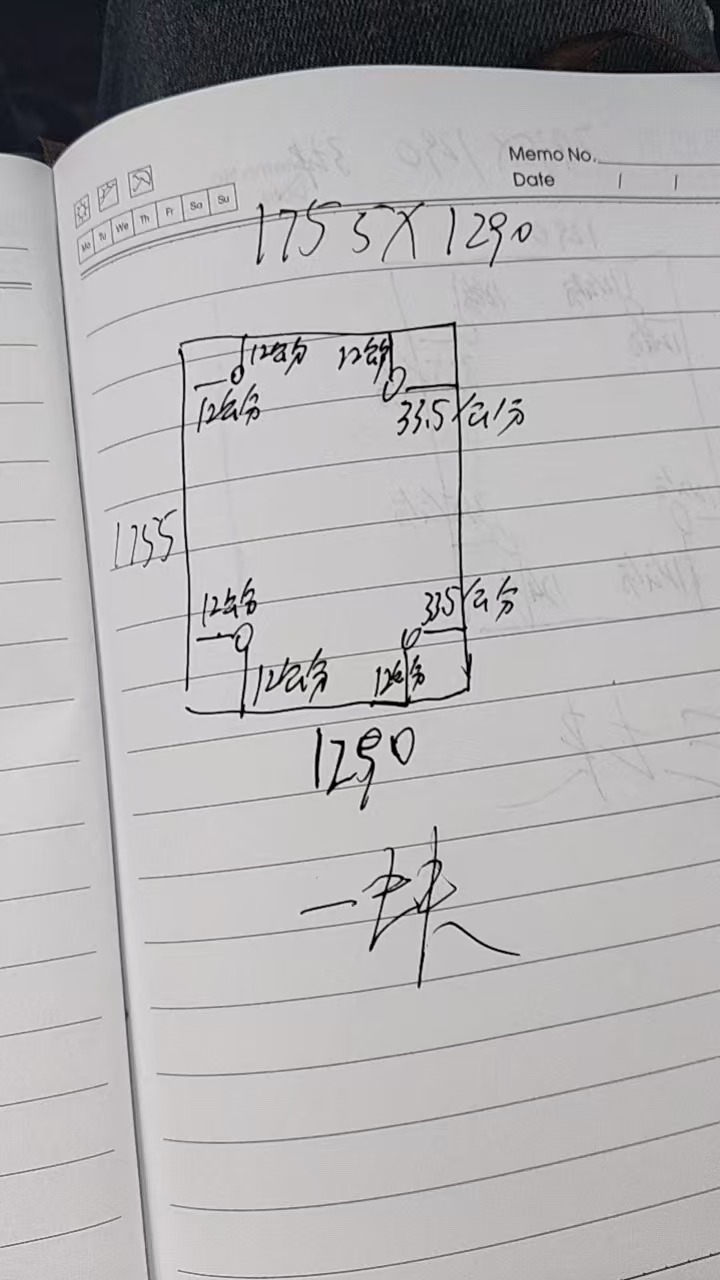 Memo No.
Date
Mo Tu We Th Fr Sa Su
1755X1290
12公分 12公分
12公分 33.5公分
1755
12公分 33.5公分
12公分 12公分
1290
一块